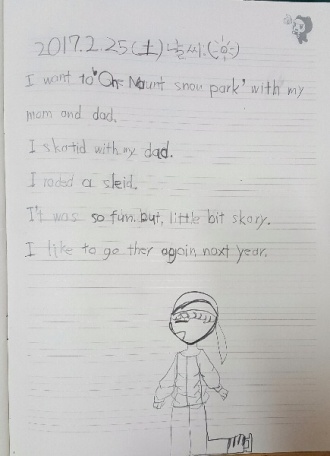 2017.2.25(土) 날씨:(☼)
I want to 'On Mount snow park' with my
mom and dad.
I skatid with my dad.
I roded a sleid.
I't was so fun. but, little bit skary.
I like to go ther again next year.